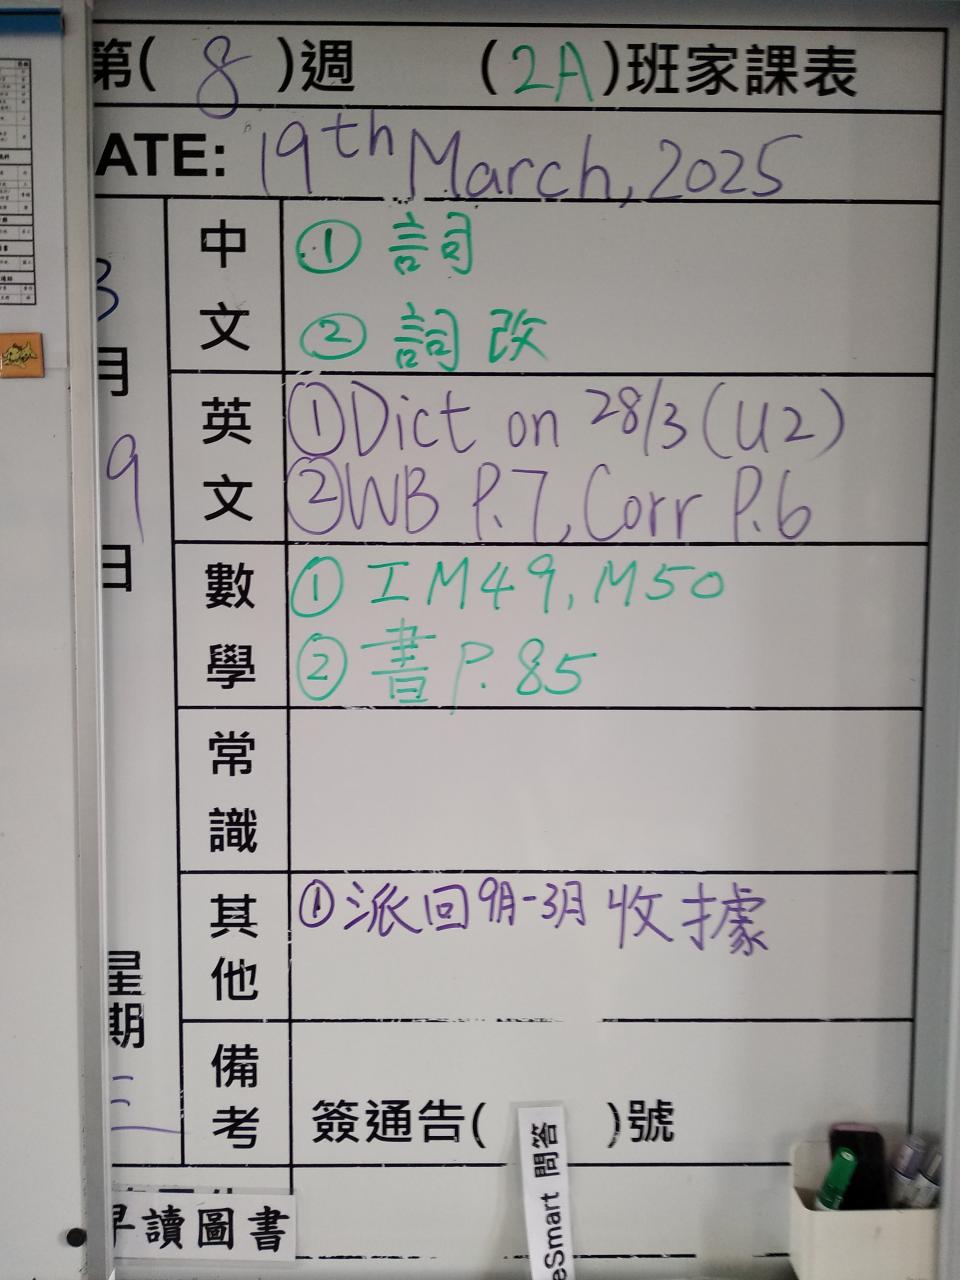 第( 8 )週 (2A)班家課表
ATE: 19th March, 2025
3月19日
星期三
中文
① 詞
② 詞改
英文
① Dict on 28/3 (U2)
② WB P.7, Corr P.6
數學
① 工M49, M50
② 書P.85
常識
其他
① 派回9月-3月收據
備考
簽通告( )號
早讀圖書
eSmart 問答